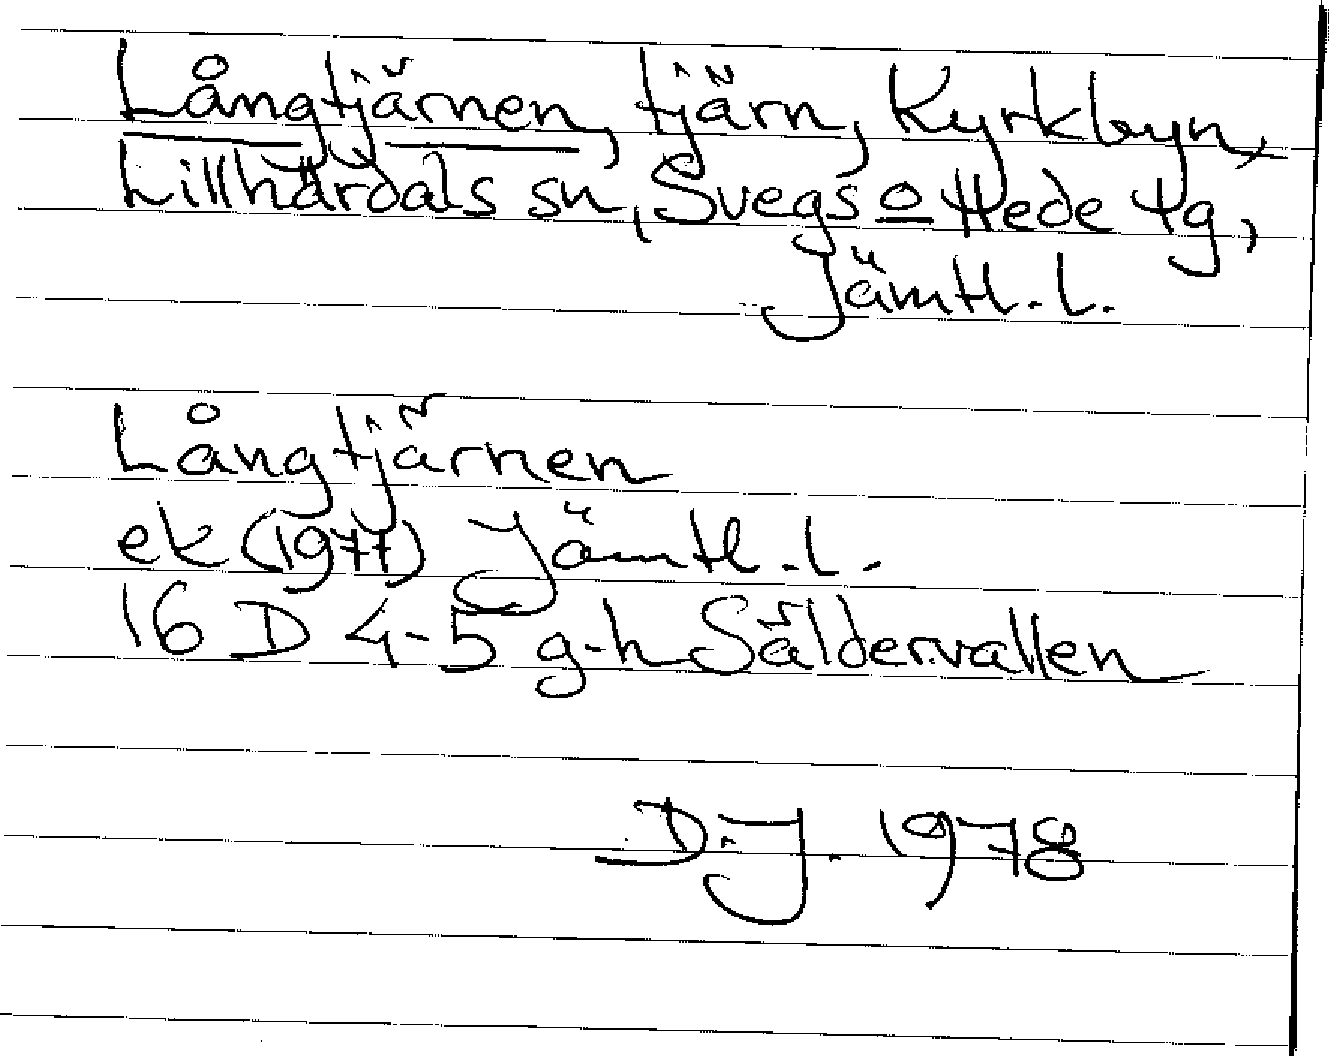 Långtjärnen, tjärn, Kyrkbyn,
Lillhärdals sn, Svegs o Hede tg,
Jämtl. l.
Långtjärnen
ek (1977) Jämtl. l.
16 D 4-5 g-h Säldervallen
D.J. 1978